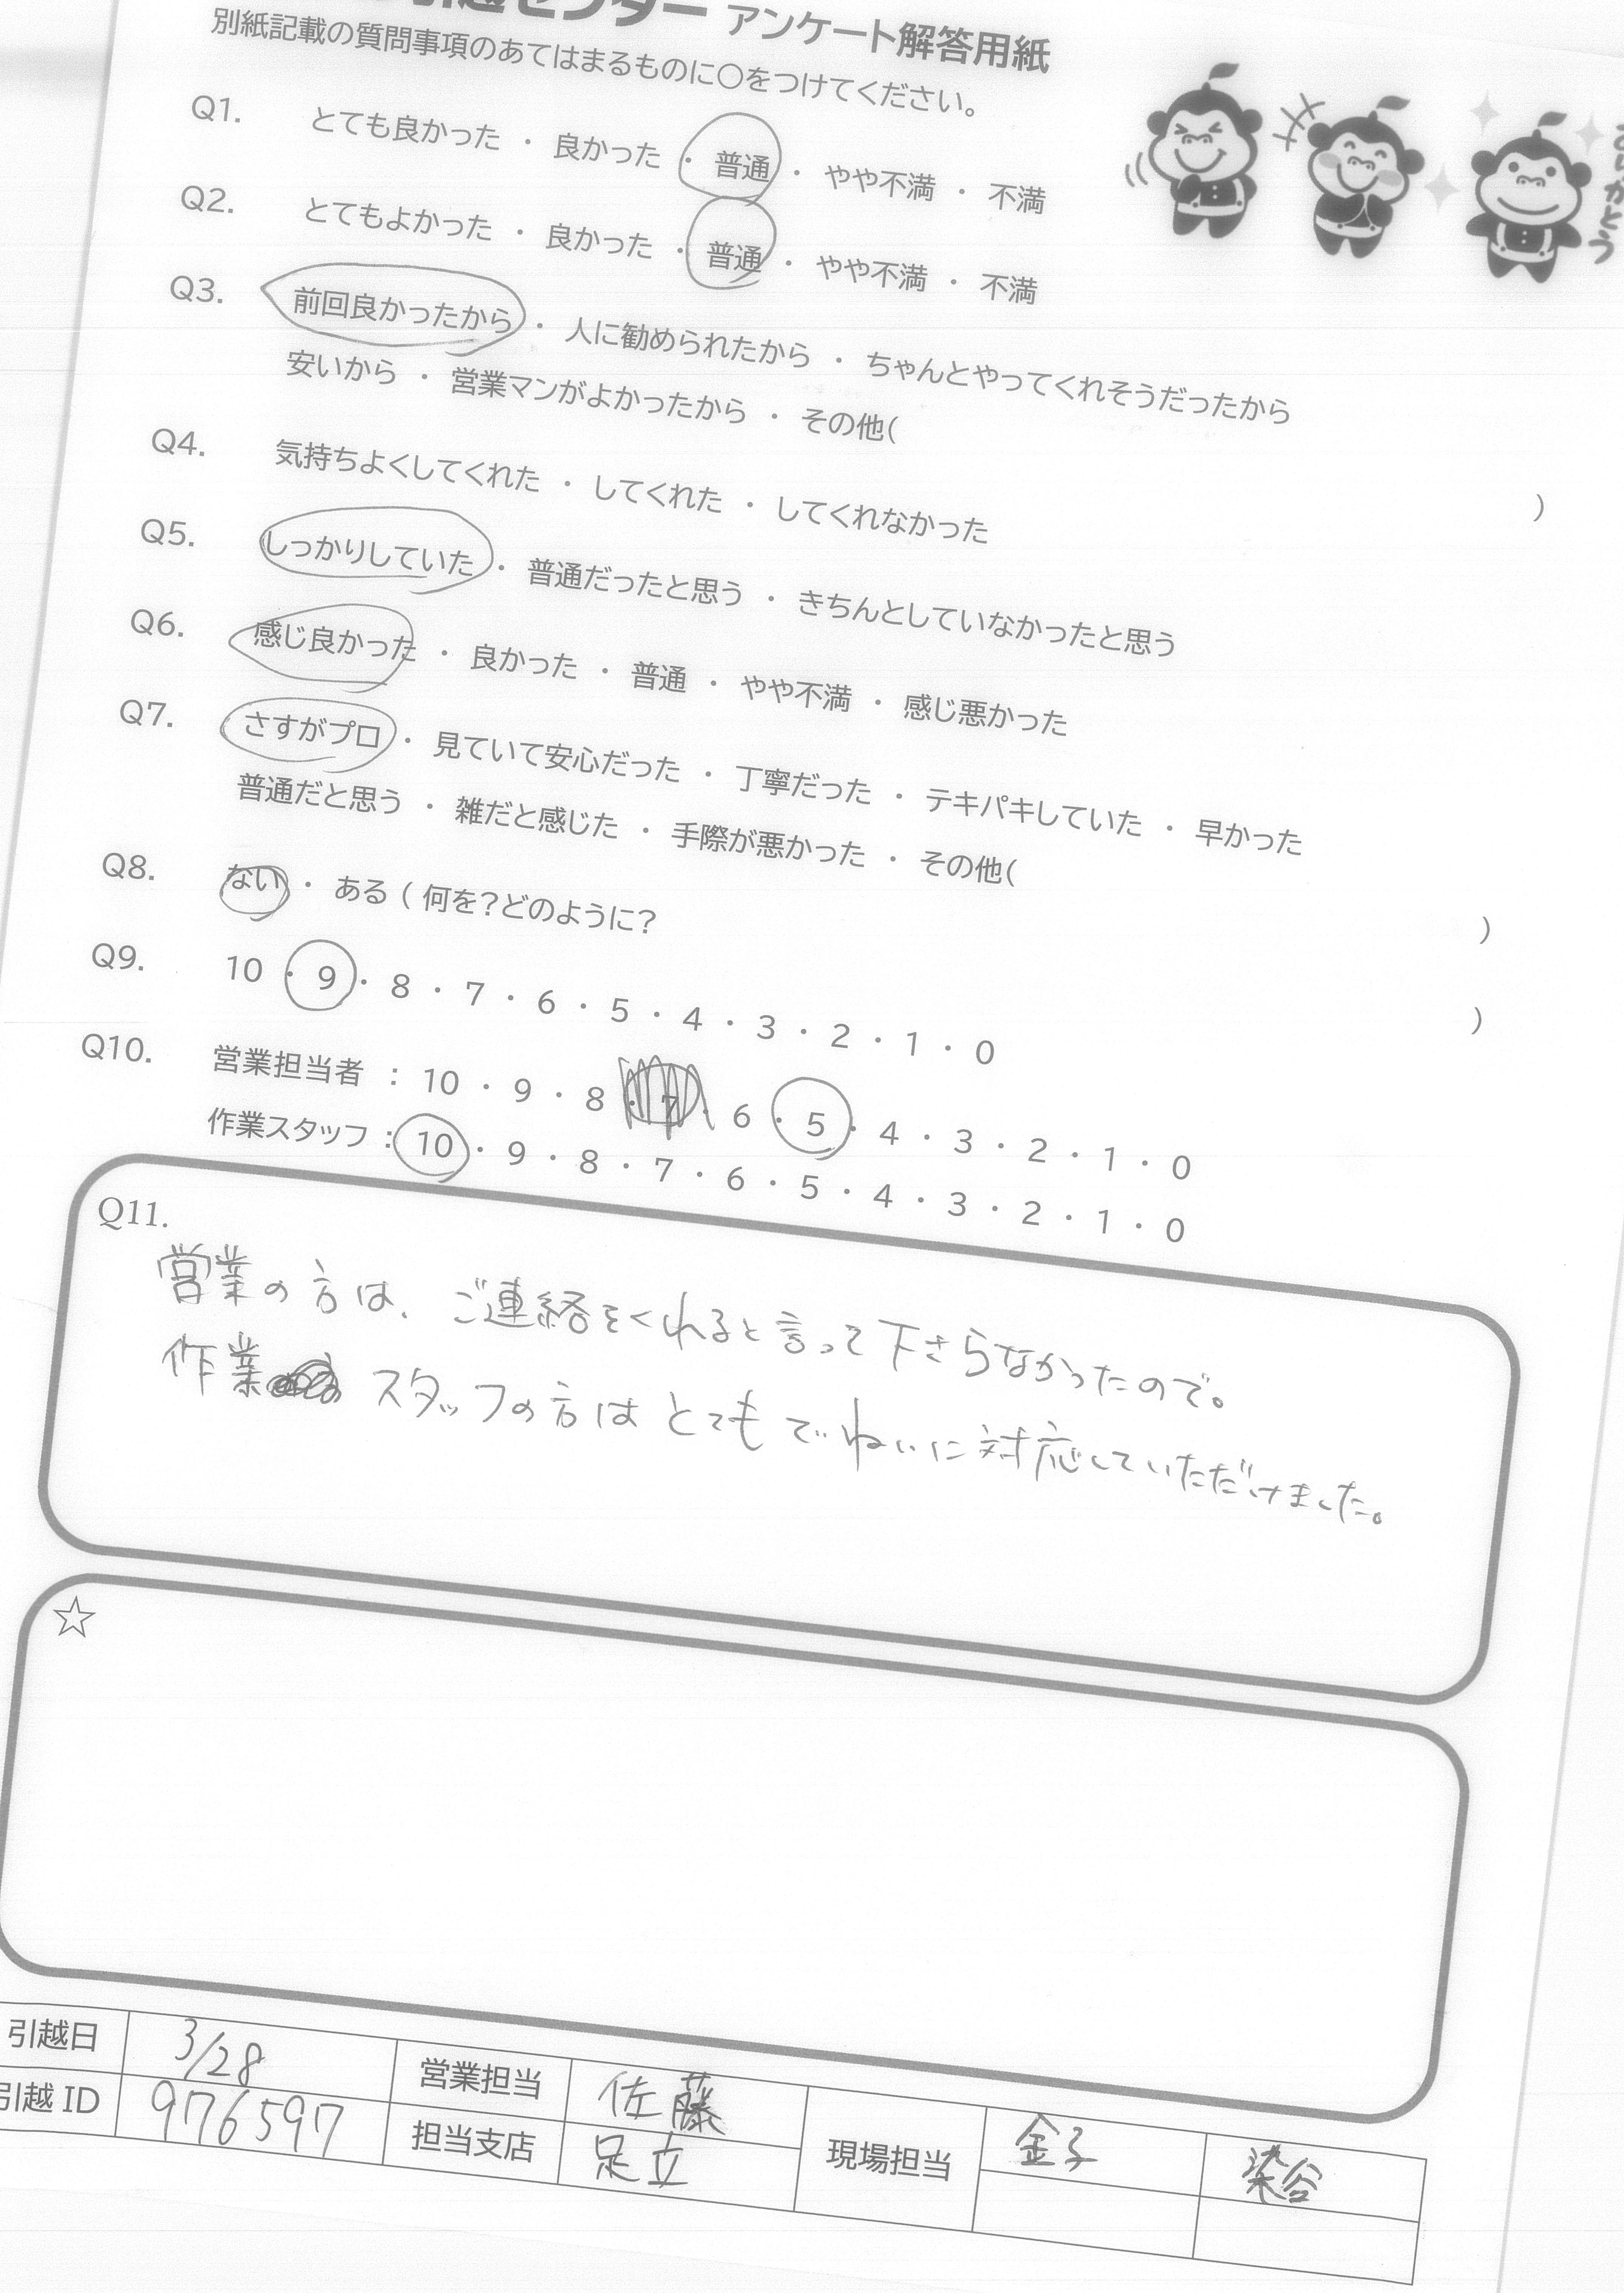 引越センター アンケート解答用紙
別紙記載の質問事項のあてはまるものに○をつけてください。
ありがとう
Q1. とても良かった ・ 良かった ・ 普通 ・ やや不満 ・ 不満
Q2. とてもよかった ・ 良かった ・ 普通 ・ やや不満 ・ 不満
Q3. 前回良かったから ・ 人に勧められたから ・ ちゃんとやってくれそうだったから
安いから ・ 営業マンがよかったから ・ その他( )
Q4. 気持ちよくしてくれた ・ してくれた ・ してくれなかった
Q5. しっかりしていた ・ 普通だったと思う ・ きちんとしていなかったと思う
Q6. 感じ良かった ・ 良かった ・ 普通 ・ やや不満 ・ 感じ悪かった
Q7. さすがプロ ・ 見ていて安心だった ・ 丁寧だった ・ テキパキしていた ・ 早かった
普通だと思う ・ 雑だと感じた ・ 手際が悪かった ・ その他( )
Q8. ない ・ ある ( 何を?どのように? )
Q9. 10 ・ 9 ・ 8 ・ 7 ・ 6 ・ 5 ・ 4 ・ 3 ・ 2 ・ 1 ・ 0
Q10. 営業担当者 : 10 ・ 9 ・ 8 ・ 7 ・ 6 ・ 5 ・ 4 ・ 3 ・ 2 ・ 1 ・ 0
作業スタッフ : 10 ・ 9 ・ 8 ・ 7 ・ 6 ・ 5 ・ 4 ・ 3 ・ 2 ・ 1 ・ 0
Q11.
営業の方は、ご連絡をくれると言って下さらなかったので。
作業 スタッフの方は とても ていねいに対応していただけました。
☆
引越日 3/28 営業担当 佐藤 現場担当 金子 染谷
引越 ID 976597 担当支店 足立